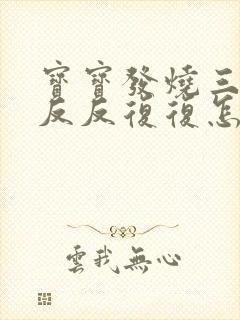 寶寶發燒三
反反復復怎
雲我無心